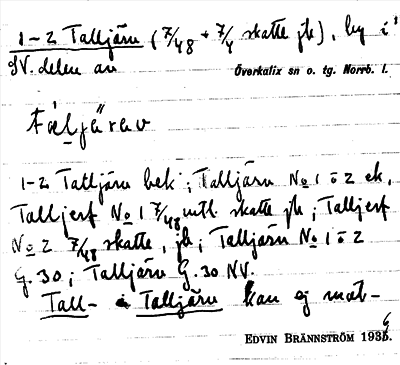 1-2 Talljärv (7/48 + 7/4 skatte jb), by i
SV. delen av Överkalix sn o. tg. Norrb. l.
1-2 Talljärv bek; Talljärv No 1 o 2 ek.
Talljerf No 1 7/48 mtl. skatte jb; Talljerf
No 2 7/48 skatte, jb; Talljärv No 1 o 2
G. 30; Talljärv G. 30 NV.
Tall- Talljärv kan ej
EDVIN BRÄNNSTRÖM